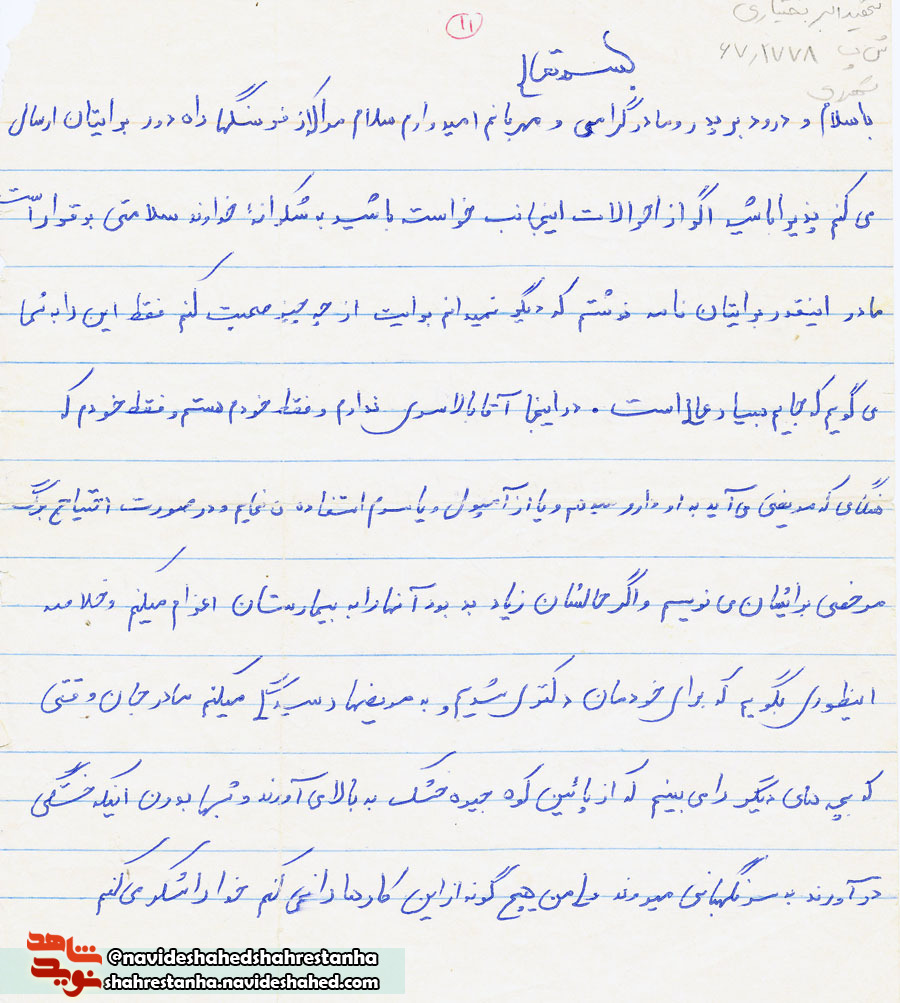 شهید اکبر بختیاری
۱۱
ش پ ۶۷٫۲۷۷۸
بسمه تعالی
باسلام و درود بر پدر و مادر گرامی و مهربانم امیدوارم سلام مرا که از فرسنگها راه دور برایتان ارسال
می کنم پذیرا باشید اگر از احوالات اینجانب خواسته باشید به شکرانهٔ خداوند سلامتی برقرار است
مادر اینقدر برایتان نامه نوشتم که دیگر نمیدانم برایت از چه چیز صحبت کنم فقط این را به شما
می گویم که جایم بسیار عالی است . در اینجا آقا بالاسری ندارم و فقط خودم هستم و فقط خودم که
هنگامی که مریضی می آید به او دارو میدهم و یا از آمپول و یا سرم استفاده می نمایم و در صورت احتیاج برگ
مرخصی برایشان می نویسم و اگر حالشان زیاد بد بود آنها را به بیمارستان اعزام میکنم و خلاصه
اینطوری بگویم که برای خودمان دکتری شدیم و به مریضها رسیدگی میکنم مادر جان وقتی
که بچه های دیگر را می بینم که از پائین کوه جیره خشک به بالا می آورند و شبها بدون اینکه خستگی
در آورند به سر نگهبانی میروند ولی من هیچ گونه از این کارها را نمی کنم خدا را شکر می کنم
نوید شاهد
@navideshahedshahrestanha
shahrestanha.navideshahed.com